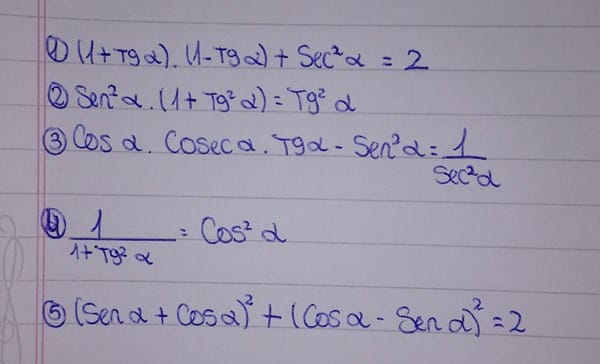 ① (1+Tg α) . (1-Tg α) + Sec² α = 2
② Sen² α . (1 + Tg² α) = Tg² α
③ Cos α . Cosec α . Tg α - Sen² α = 1/Sec² α
④ 1/1+Tg² α = Cos² α
⑤ (Sen α + Cos α)² + (Cos α - Sen α)² = 2